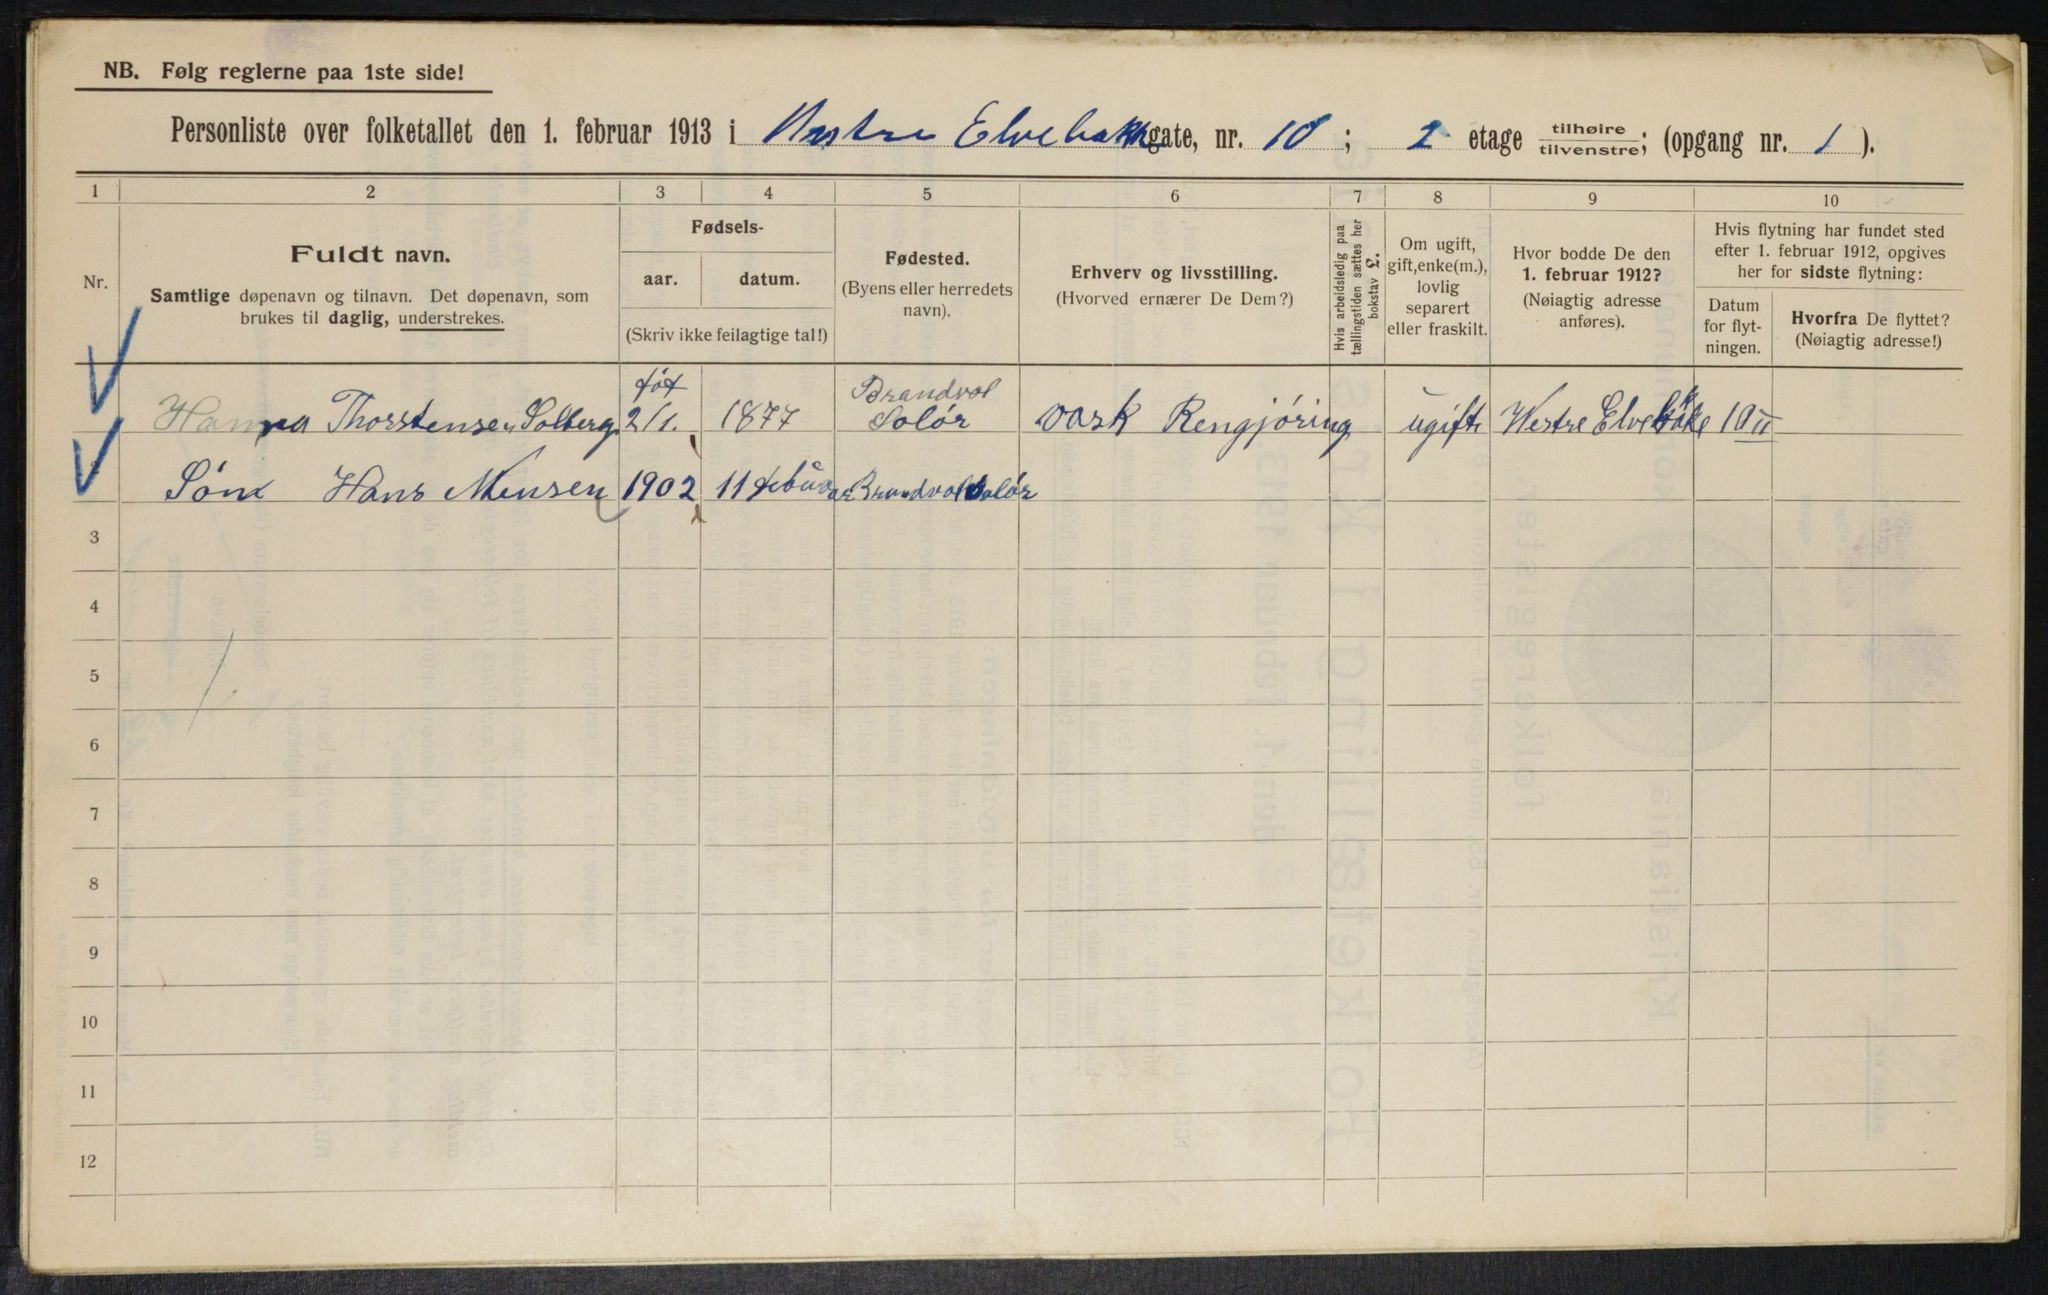 NB. Følg reglerne paa 1ste side!
Personliste over folketallet den 1. februar 1913 i Vestre Elvebakkegate, nr. 10 ; 2 etage tilhøire/tilvenstre; (opgang nr. 1 ).
1 2 3 4 5 6 7 8 9 10
Nr.
Fuldt navn.
Samtlige døpenavn og tilnavn. Det døpenavn, som
brukes til daglig, understrekes.
Fødsels-
aar. datum.
(Skriv ikke feilagtige tal!)
Fødested.
(Byens eller herredets
navn).
Erhverv og livsstilling.
(Hvorved ernærer De Dem?)
Hvis arbeidsledig paa
tællingstiden sættes her
bokstav L.
Om ugift,
gift, enke(m.),
lovlig
separert
eller fraskilt.
Hvor bodde De den
1. februar 1912?
(Nøiagtig adresse
anføres).
Hvis flytning har fundet sted
efter 1. februar 1912, opgives
her for sidste flytning:
Datum
for flyt-
ningen.
Hvorfra De flyttet?
(Nøiagtig adresse!)
føt Brandvol
Hanna Thorstensen Solberg 2/1. 1877 Solór vask Rengjóring ugift Vestre Elvebake 10 II
Sónn Hans 1902 11 febuar Brandvol Solór
3
4
5
6
7
8
9
10
11
12